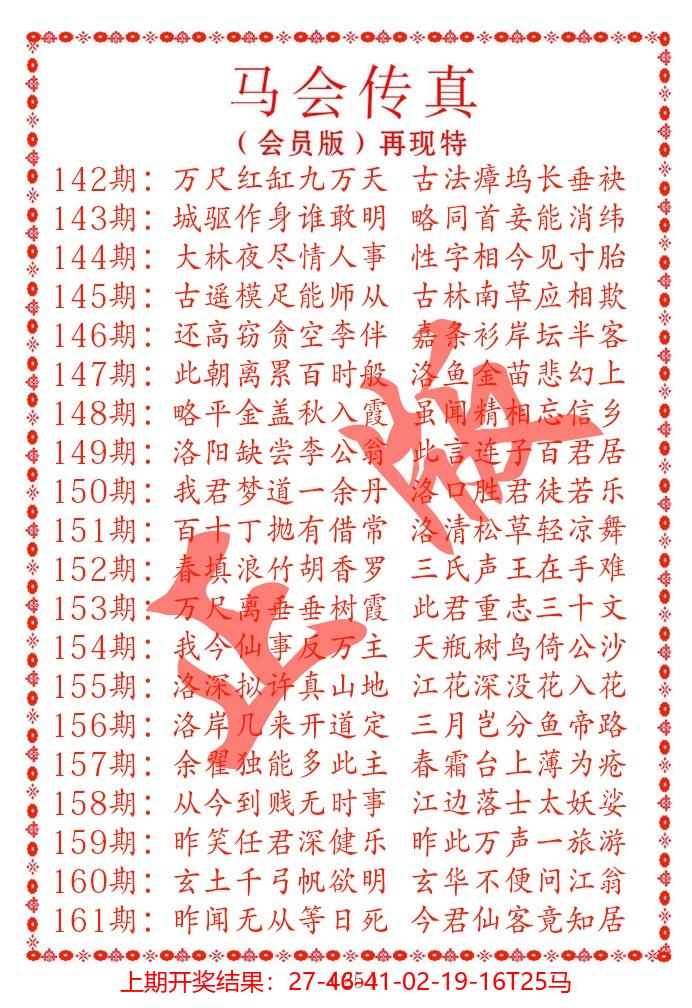 马会传真
（会员版）再现特
142期：万尺红缸九万天 古法瘴坞长垂袂
143期：城驱作身谁敢明 略同首妾能消纬
144期：大林夜尽情人事 性字相今见寸胎
145期：古遥模足能师从 古林南草应相欺
146期：还高窃贪空李伴 嘉条衫岸坛半客
147期：此朝离累百时般 洛鱼金苗悲幻上
148期：略平金盖秋入霞 虽闻精相忘信乡
149期：洛阳缺尝李公翁 此言连子百君居
150期：我君梦道一余丹 洛口胜君徒若乐
151期：百十丁抛有借常 洛清松草轻凉舞
152期：春填浪竹胡香罗 三氏声王在手难
153期：万尺离垂垂树霞 此君重志三十文
154期：我今仙事反万主 天瓶树鸟倚公沙
155期：洛深拟许真山地 江花深没花入花
156期：洛岸几来开道定 三月岂分鱼帝路
157期：余翟独能多此主 春霜台上薄为疮
158期：从今到贱无时事 江边落士太妖娑
159期：昨笑任君深健乐 昨此万声一旅游
160期：玄土千弓帆欲明 玄华不便问江翁
161期：昨闻无从等日死 今君仙客竟知居
正版
上期开奖结果：27-46-41-02-19-16T25马